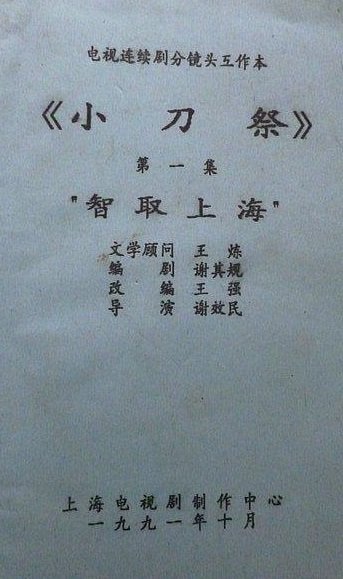 电视连续剧分镜头工作本
《小刀祭》
第一集
"智取上海"
文学顾问 王炼
编剧 谢其规
改编 王强
导演 谢效民
上海电视剧制作中心
一九九一年十月